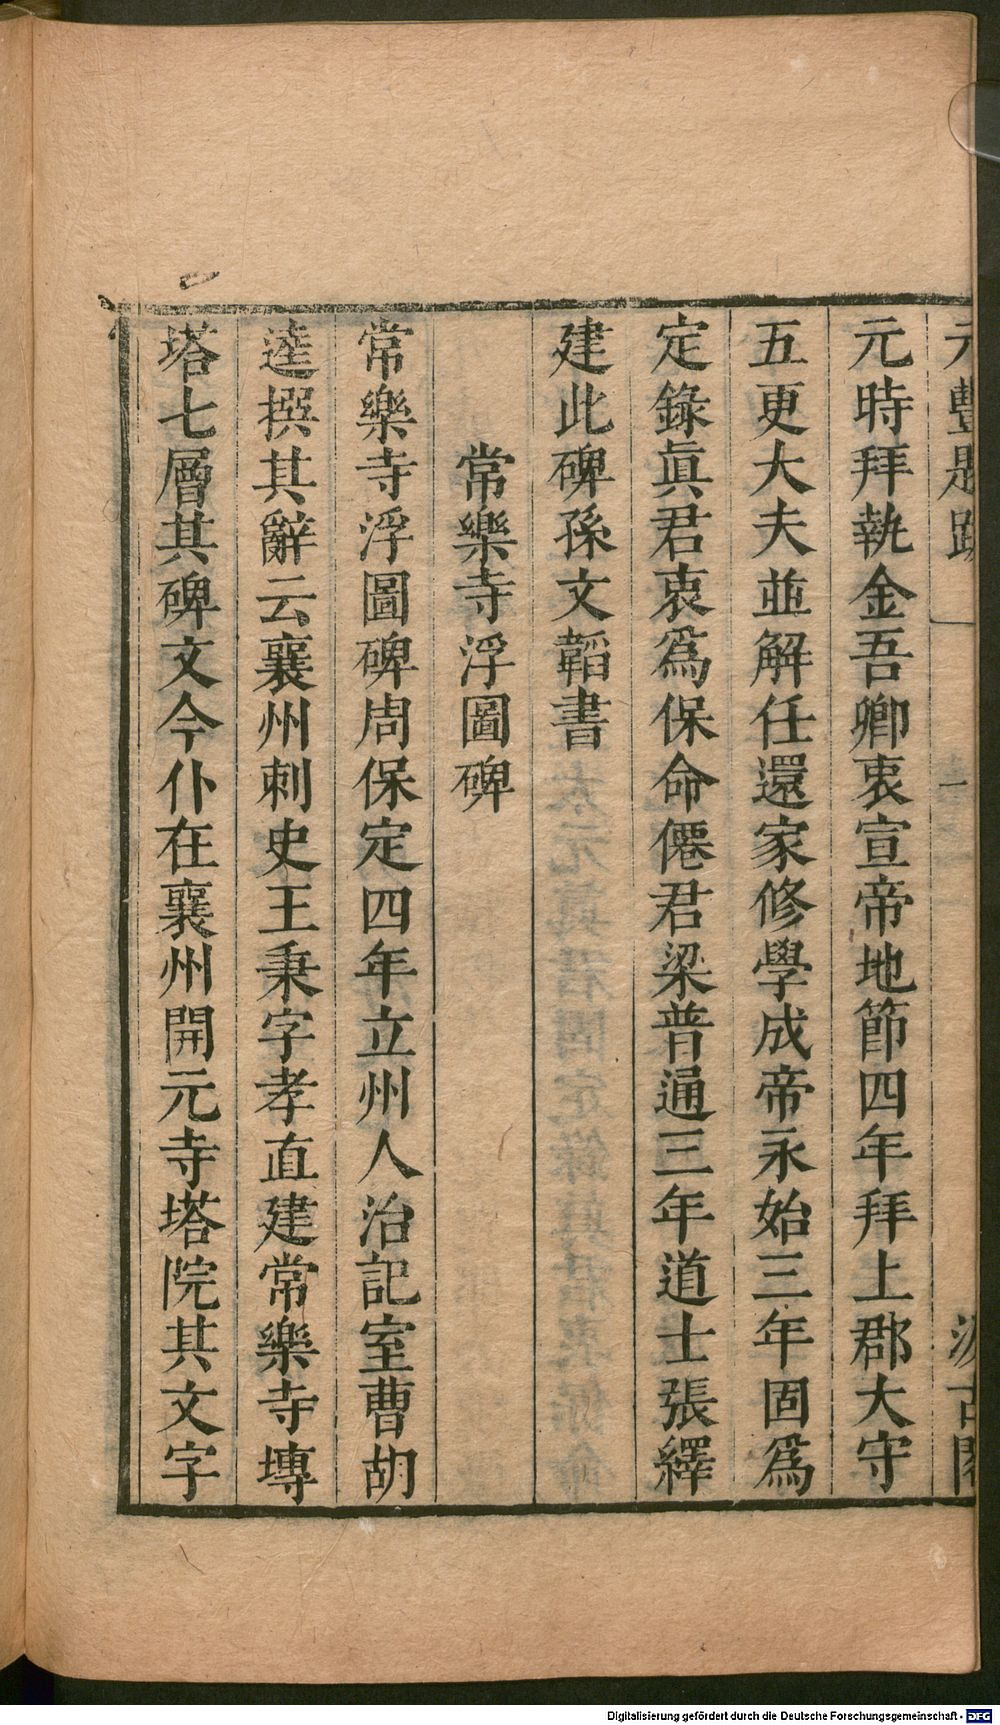 元豐題跋 一 汲古閣
元時拜執金吾卿衷宣帝地節四年拜上郡大守
五更大夫並解任還家修學成帝永始三年固爲
定錄眞君衷爲保命僊君梁普通三年道士張繹
建此碑孫文韜書
常樂寺浮圖碑
常樂寺浮圖碑周保定四年立州人治記室曹胡
逹撰其辭云襄州刺史王秉字孝直建常樂寺塼
塔七層其碑文今仆在襄州開元寺塔院其文字
Digitalisierung gefördert durch die Deutsche Forschungsgemeinschaft - DFG